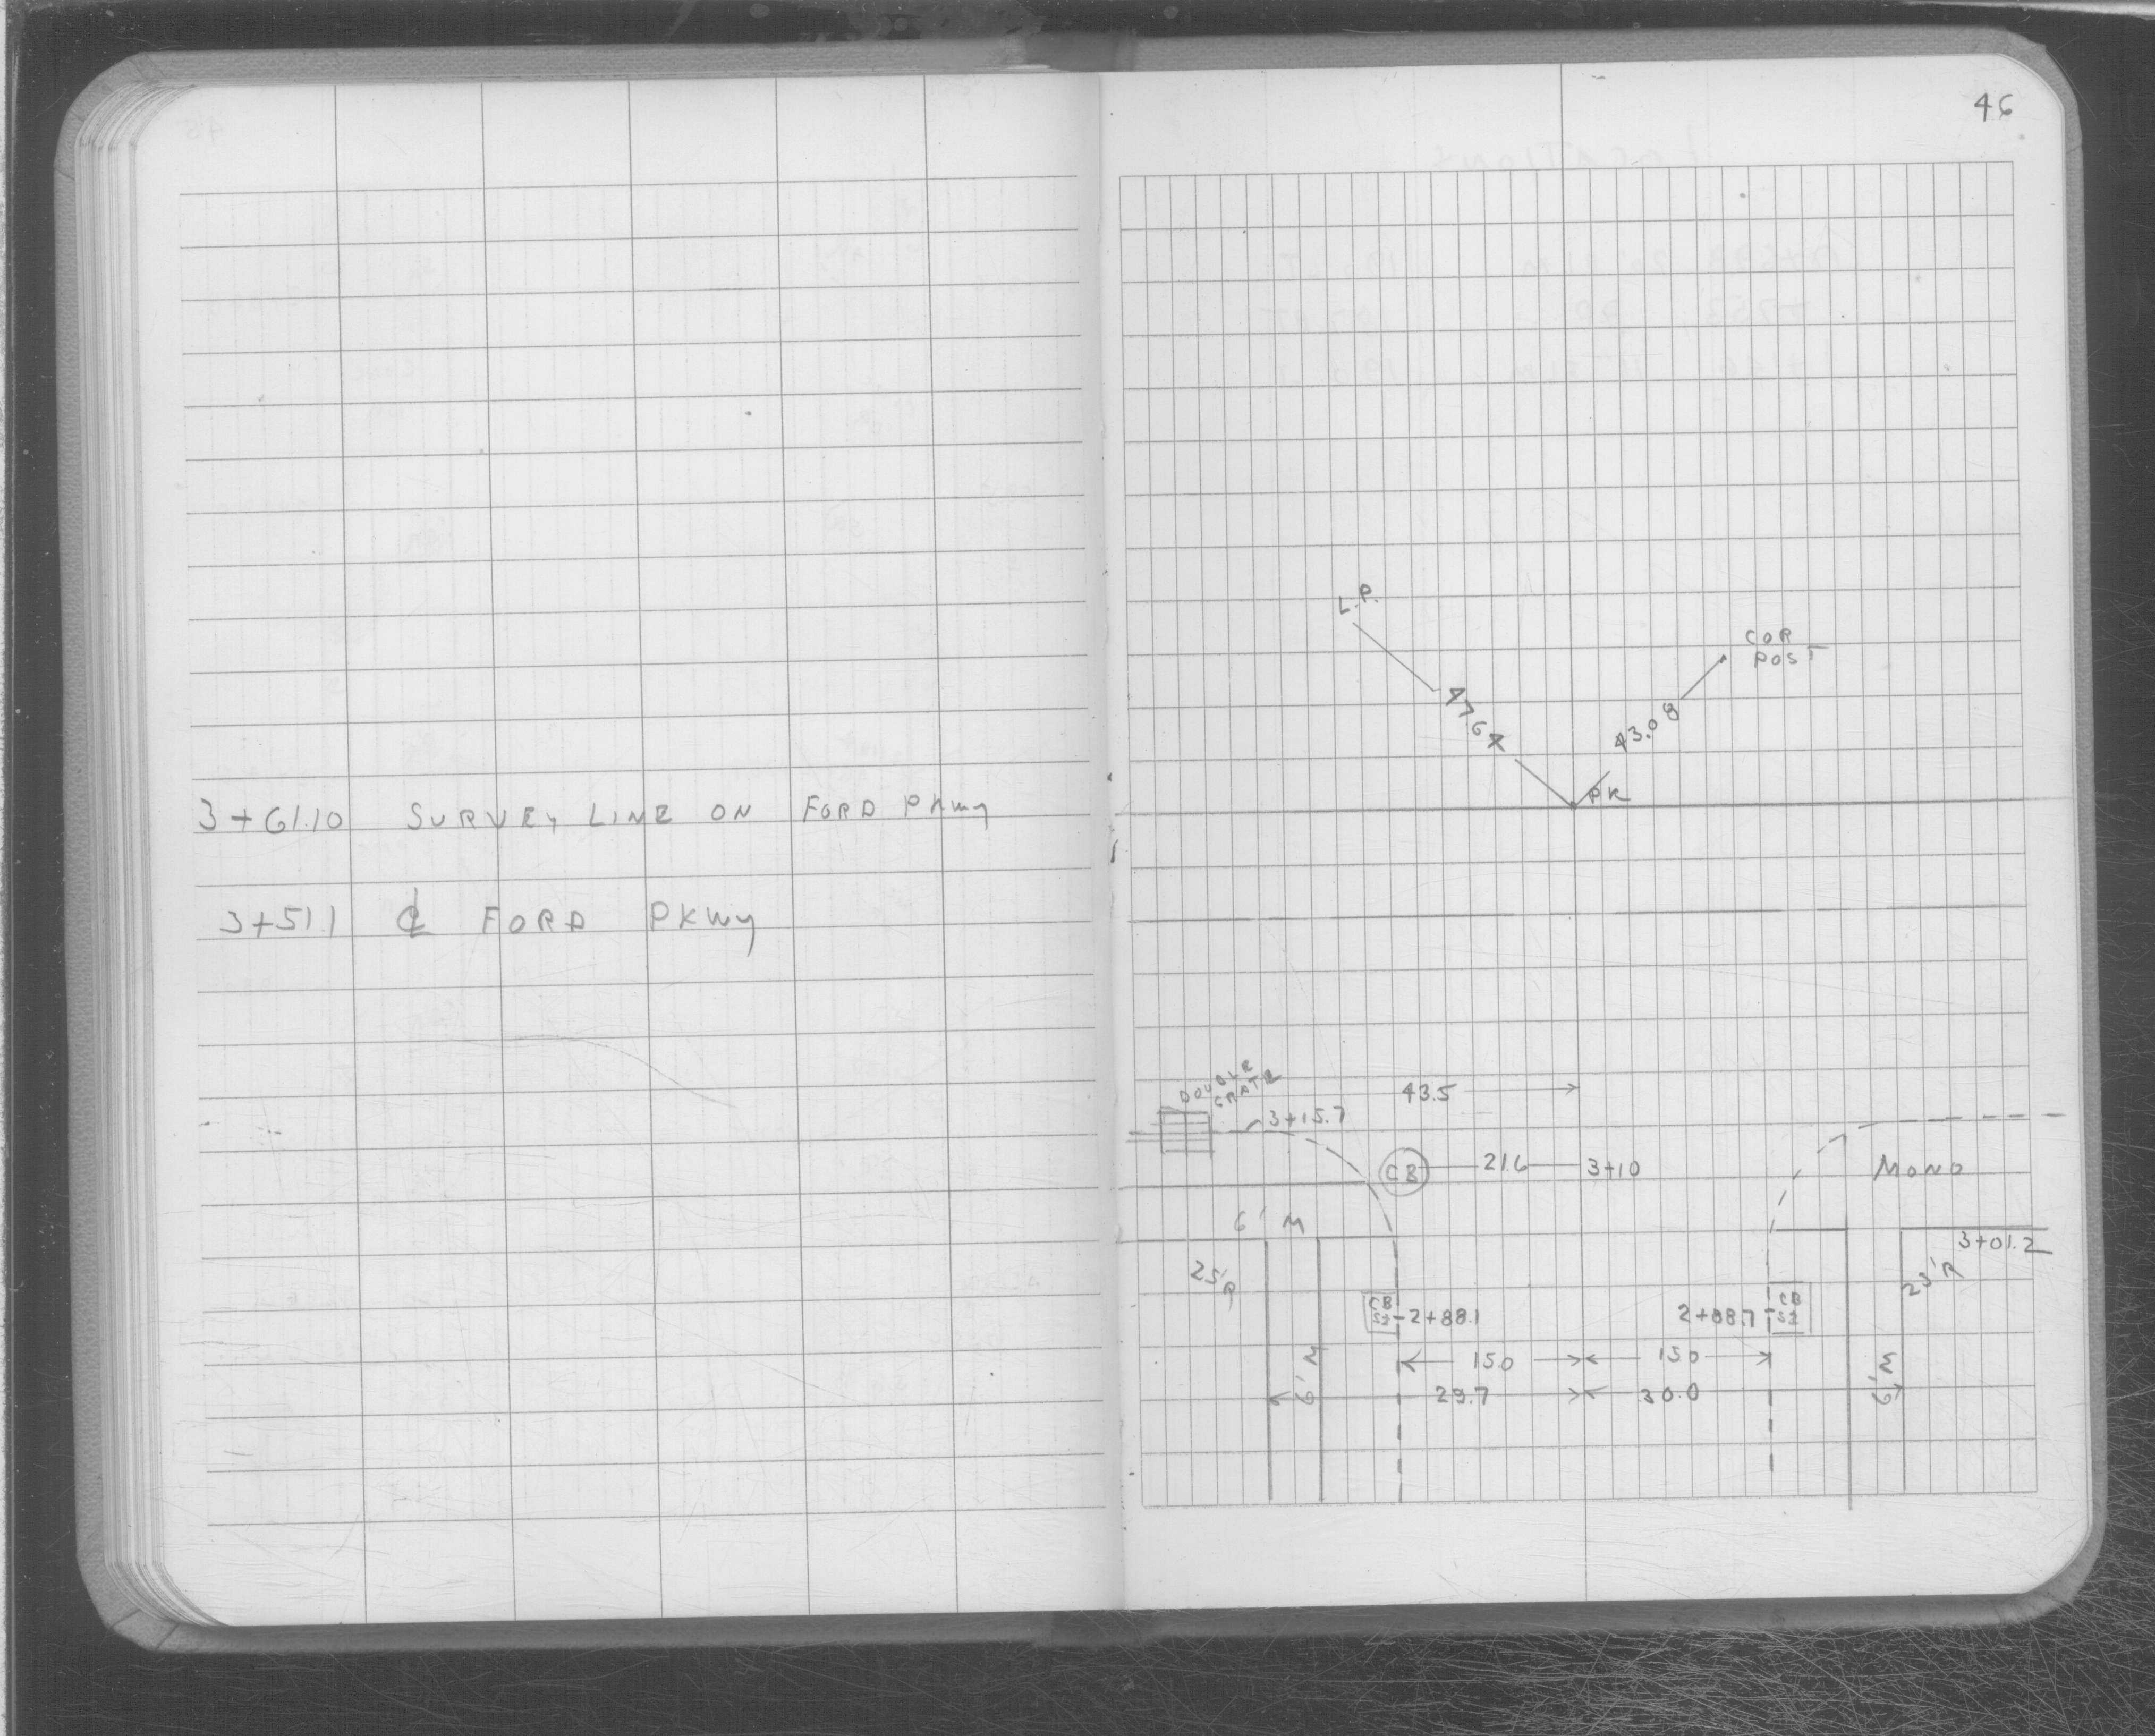 3+61.10 SURVEY LINE ON FORD PKwy
3+51.1 ℄ FORD PKwy
46
L.P.
COR
POST
43.08
PK
DOUBLE
GRATE
43.5
3+15.7
CB
21.6
3+10
MONO
6' M
3+01.2
25'R
CB
2+88.1
2+88.7
CB
15.0
15.0
6' M
6' M
29.7
30.0